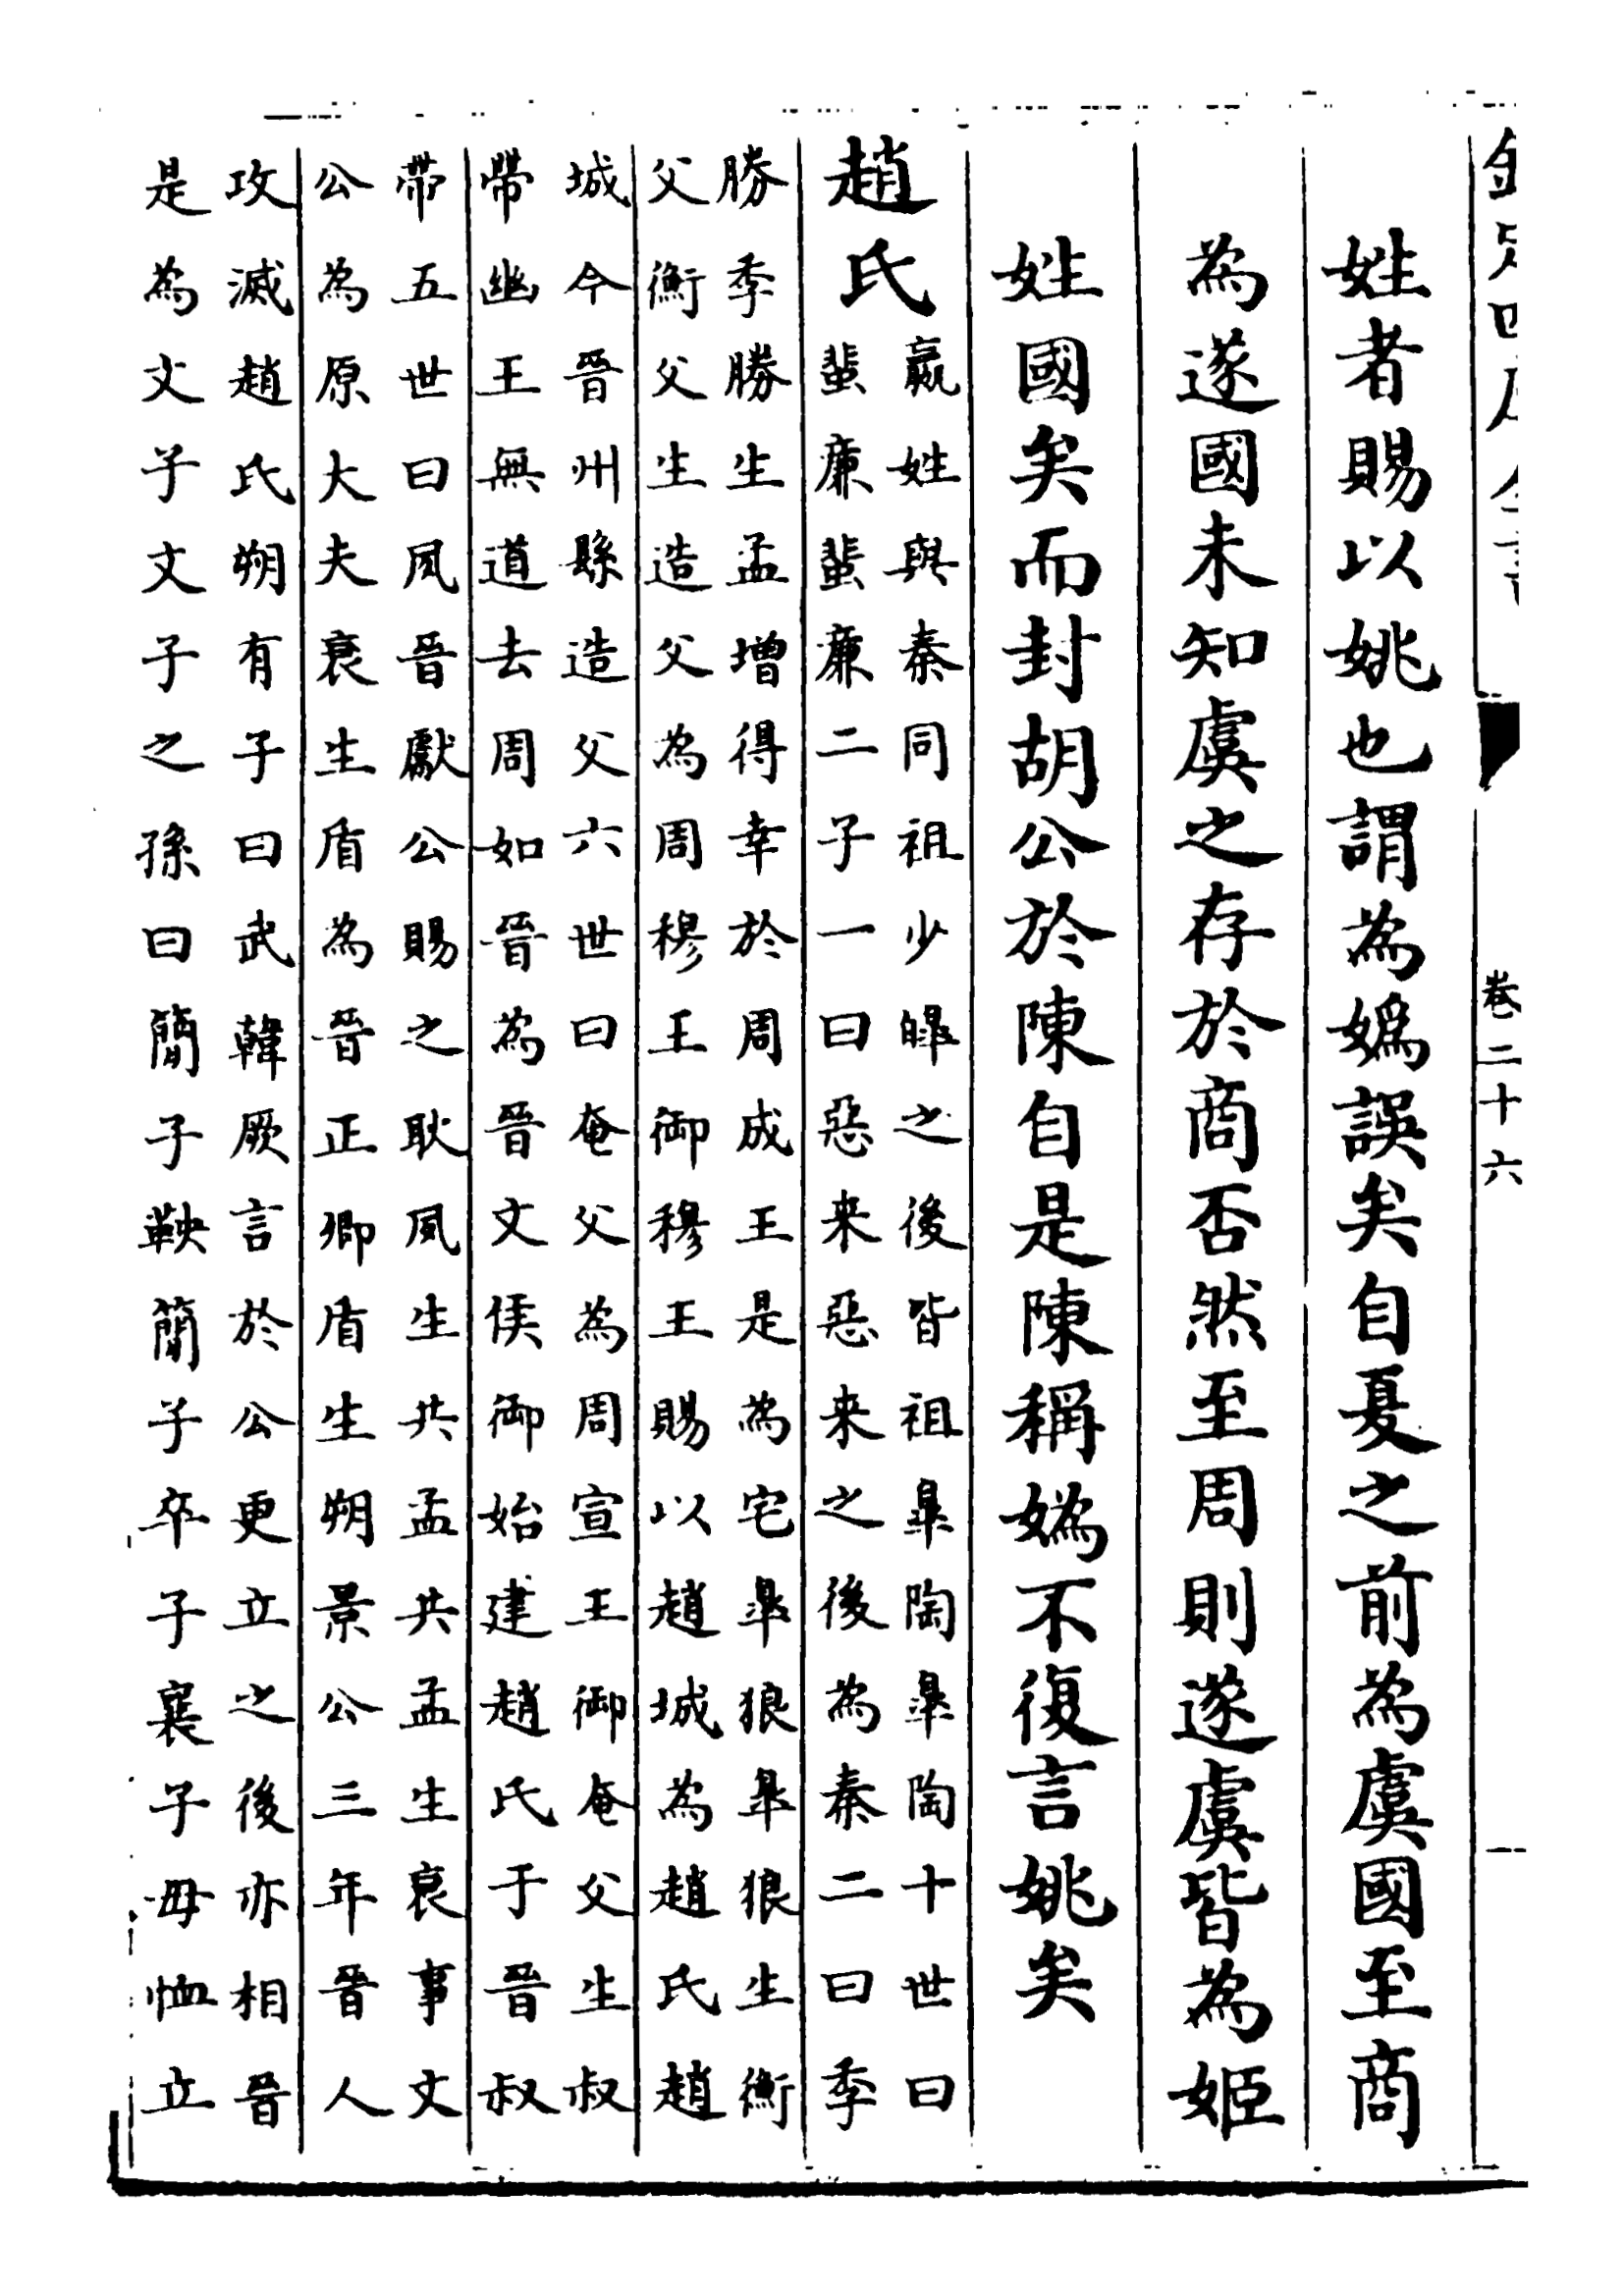 欽定四庫全書
卷二十六
姓者賜以姚也謂為嬀誤矣自夏之前為虞國至商
為遂國未知虞之存於商否然至周則遂虞皆為姬
姓國矣而封胡公於陳自是陳稱嬀不復言姚矣
趙氏
嬴姓與秦同祖少皥之後皆祖臯陶臯陶十世曰
蜚廉蜚廉二子一曰惡来惡来之後為秦二曰季
勝季勝生孟增得幸於周成王是為宅臯狼臯狼生衡
父衡父生造父造父為周穆王御穆王賜以趙城為趙氏趙
城今晉州縣造父六世曰奄父為周宣王御奄父生叔
帶幽王無道去周如晉為晉文侯御始建趙氏于晉叔
帶五世曰夙晉獻公賜之耿夙生共孟共孟生衰事文
公為原大夫衰生盾為晉正卿盾生朔景公三年晉人
攻滅趙氏朔有子曰武韓厥言於公更立之後亦相晉
是為文子文子之孫曰簡子鞅簡子卒子襄子毋恤立